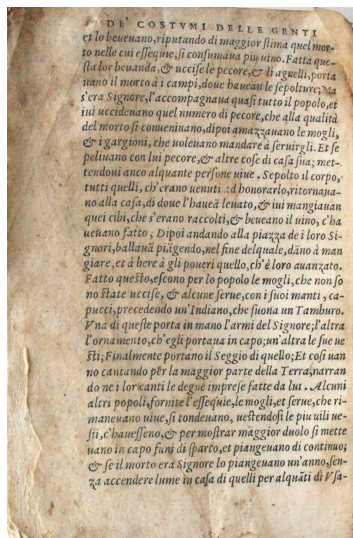 DE' COSTVMI DELLE GENTI
et lo beueuano, riputando di maggior stima quel mor-
to nelle cui essequie, si consumaua piu uino. Fatta que-
sta lor beuanda, & uccise le pecore, & di agnelli, porta
uano il morto à i campi, doue haueuan le sepolture; Ma
s'era Signore, l'accompagnaua quasi tutto il popolo, et
iui uccideuano quel numero di pecore, che alla qualità
del morto si conueniuano, dipoi amazzauano le mogli,
& i gargioni, che uoleuano mandare à seruirgli. Et se
peliuano con lui pecore, & altre cose di casa sua; met-
tendoui anco alquante persone uiue. Sepolto il corpo,
tutti quelli, ch'erano uenuti ad honorarlo, ritornaua-
no alla casa, di doue l'haueã leuato, & iui mangiauan
quei cibi, che s'erano raccolti, & beueano il uino, c'ha
ueuano fatto, Dipoi andando alla piazza de i loro Si-
gnori, ballauã piãgendo, nel fine delquale, dãno à man
giare, et à bere à gli poueri quello, ch'è loro auanzato.
Fatto questo, escono per lo popolo le mogli, che non so
no state uccise, & alcune serue, con i suoi manti, ca-
pucci, precedendo un'Indiano, che suona un Tamburo.
Vna di queste porta in mano l'armi del Signore; l'altra
l'ornamento, ch'egli portaua in capo; un'altra le sue ue
sti; Finalmente portano il Seggio di quello; Et cosi uan
no cantando per la maggior parte della Terra, narran
do ne i lor canti le degne imprese fatte da lui. Alcuni
altri popoli, fornite l'essequie, le mogli, et serue, che ri-
maneuano uiue, si tondeuano, uestendosi le piu uili ue-
sti, c'hauesseno, & per mostrar maggior duolo si mette
uano in capo funi di sparto, et piangeuano di continuo;
& se il morto era Signore lo piangeuano un'anno, sen-
za accendere lume in casa di quelli per alquãti dì Vsa-